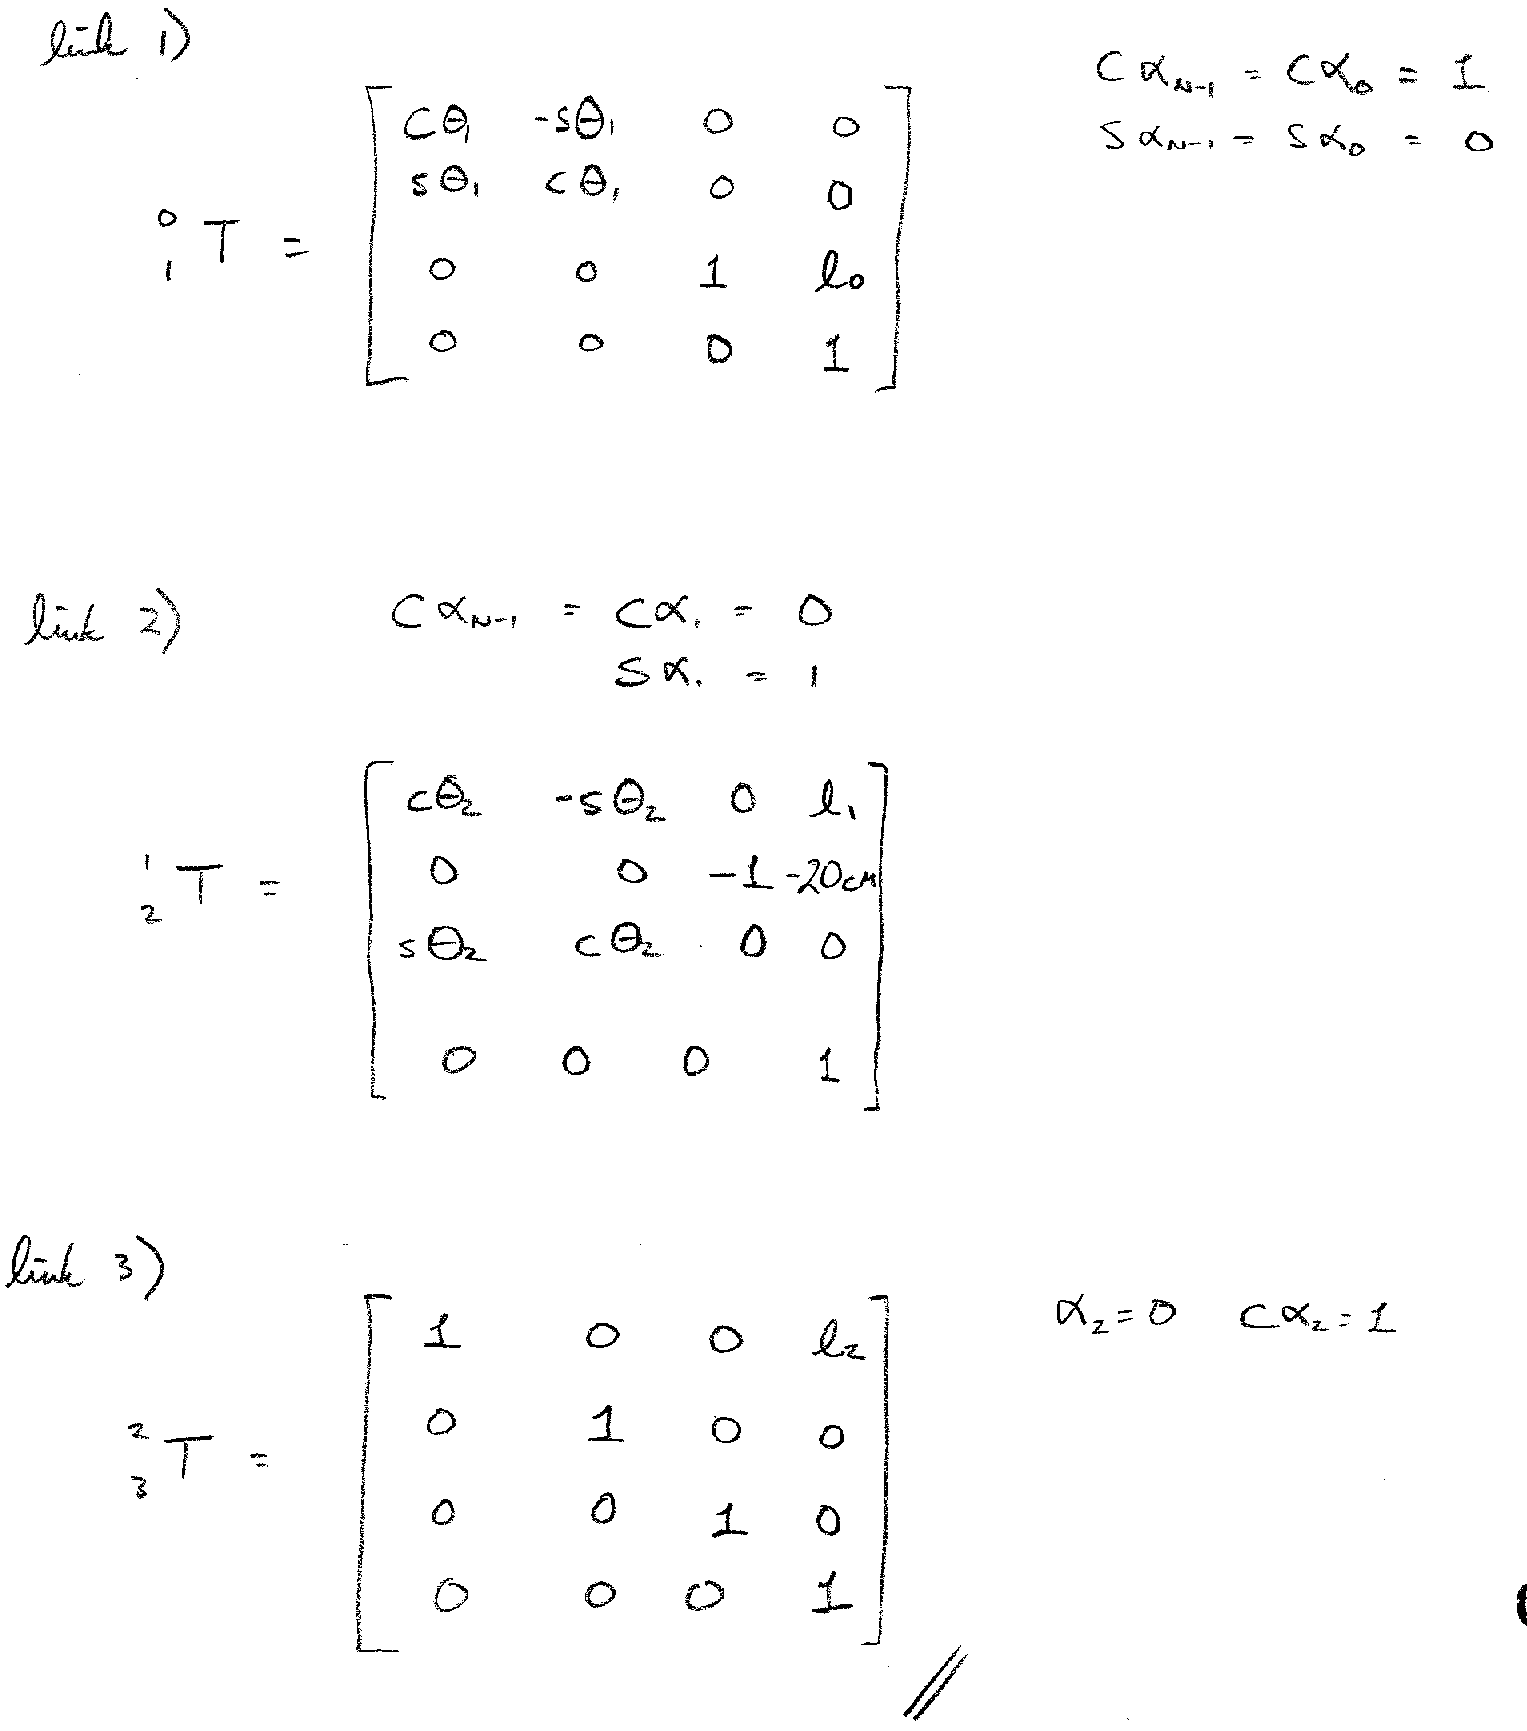 link 1)
Cα_{N-1} = Cα_0 = 1
Sα_{N-1} = Sα_0 = 0
^0_1 T =
cθ_1 -sθ_1 0 0
sθ_1 cθ_1 0 0
0 0 1 l_0
0 0 0 1
link 2)
Cα_{N-1} = Cα_1 = 0
Sα_1 = 1
^1_2 T =
cθ_2 -sθ_2 0 l_1
0 0 -1 -20cm
sθ_2 cθ_2 0 0
0 0 0 1
link 3)
α_2=0 Cα_2=1
^2_3 T =
1 0 0 l_2
0 1 0 0
0 0 1 0
0 0 0 1